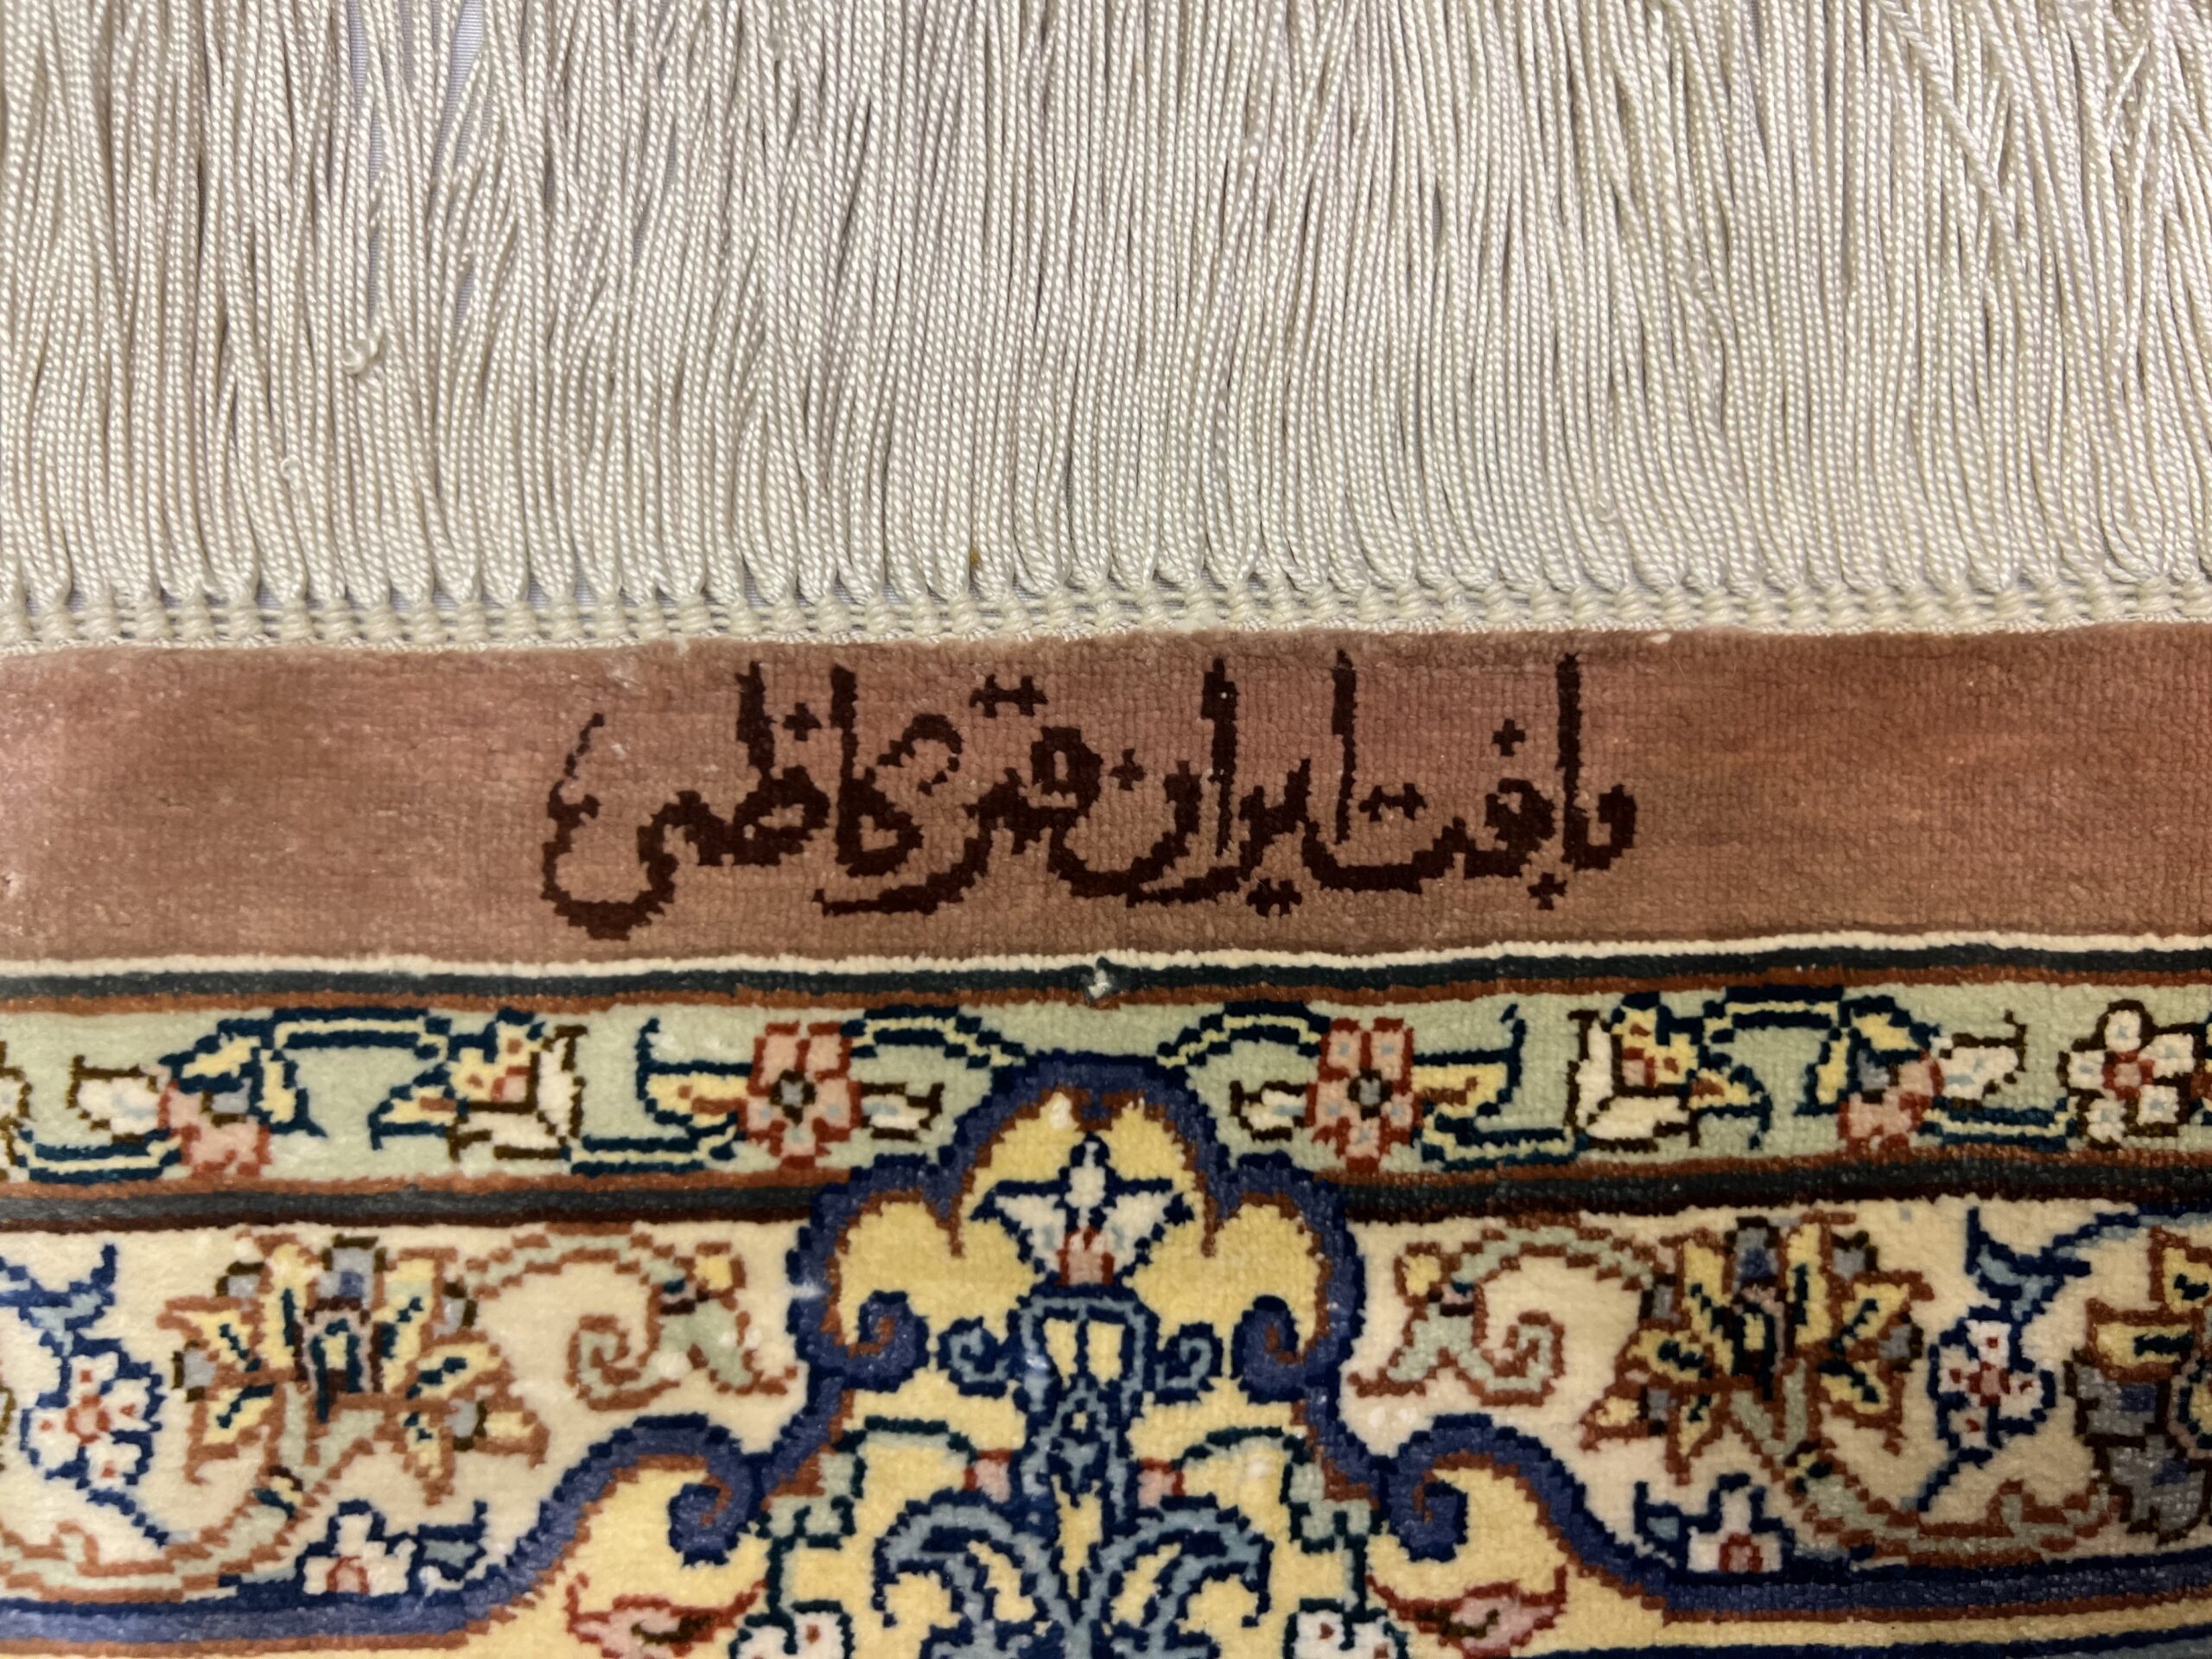 بافت ایران قم کاظمی